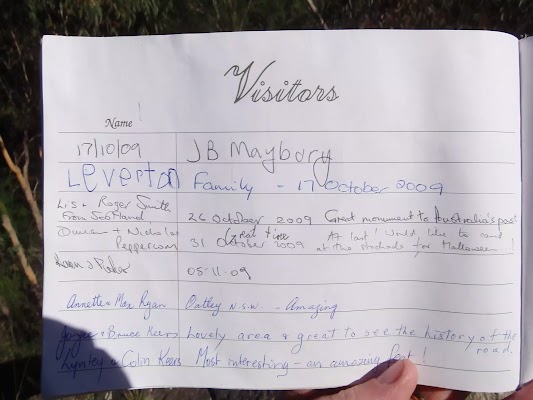 Visitors
Name
17/10/09 JB Maybury
Leverton Family - 17 October 2009
Lis + Roger Smith
from Scotland 26 October 2009 Great monument to Australia's past
Duncan + Nicholas Great time At last! Would like to camp
Peppercorn 31 October 2009 at the stockade for Halloween!
05-11-09
Annette & Max Ryan Oatley N.S.W. - Amazing
Joyce & Bruce Keers Lovely area & great to see the history of the
road.
Lyntey & Colin Keers Most interesting - an amazing feat!